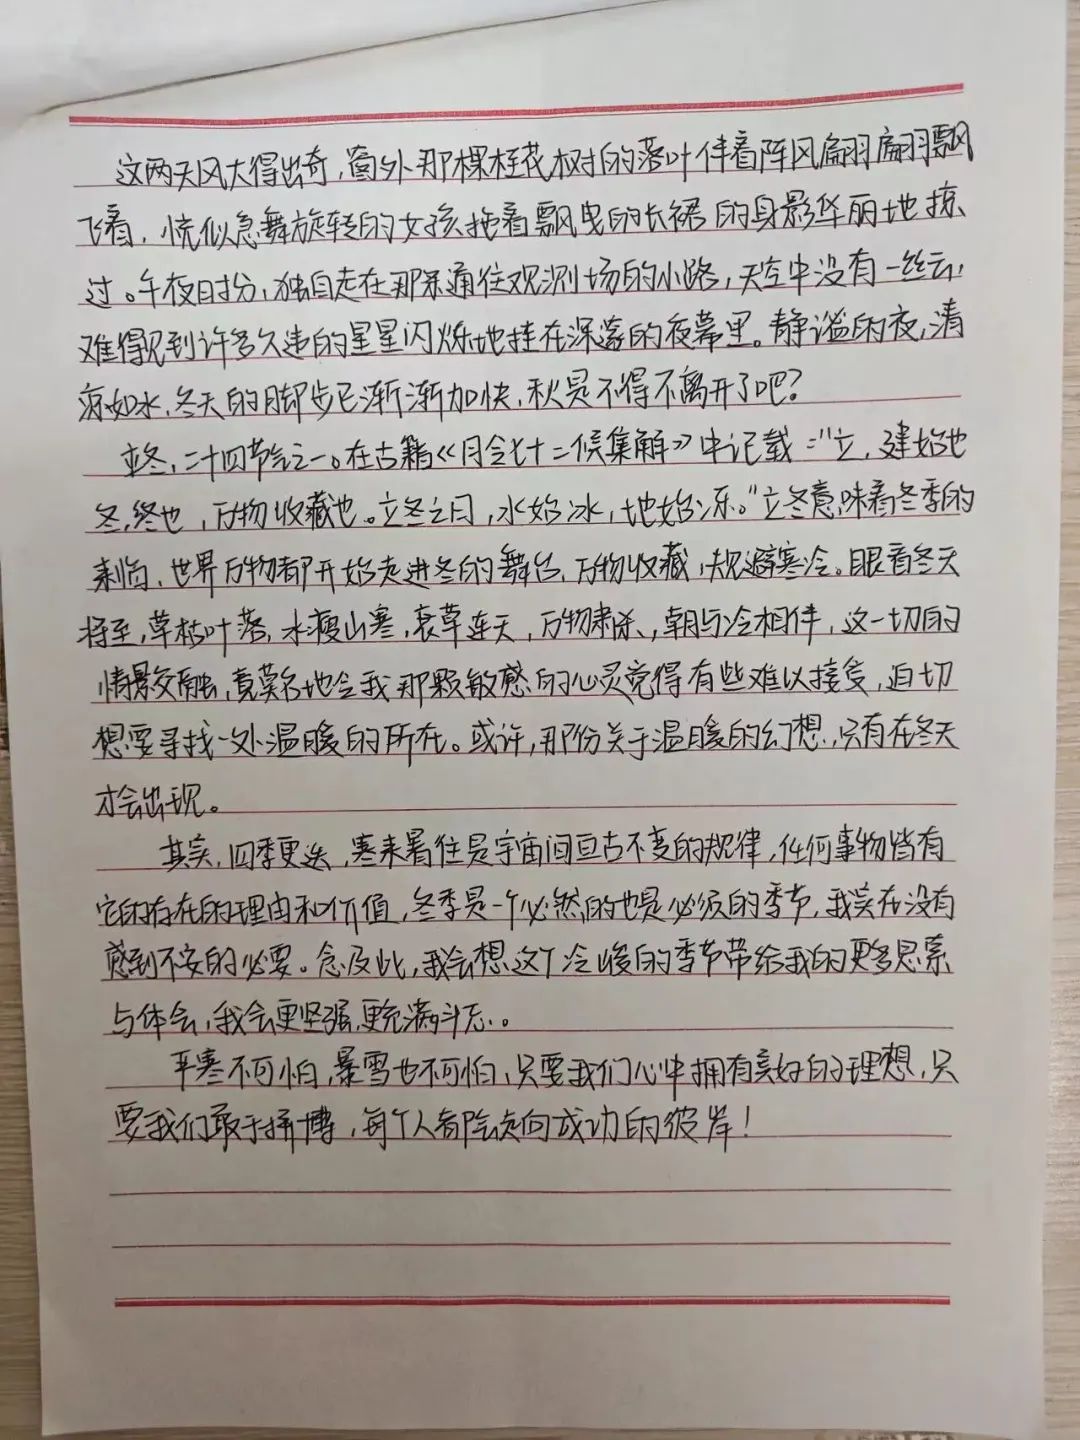 这两天风大得出奇,窗外那棵桂花树的落叶伴着阵风翩翩飘
飞着,恍似急舞旋转的女孩拖着飘曳的长裙的身影华丽地掠
过。午夜时分,独自走在那条通往观测场的小路,天空中没有一丝云,
难得见到许多久违的星星闪烁地挂在深邃的夜幕里。静谧的夜,清
凉如水,冬天的脚步已渐渐加快,秋是不得不离开了吧?
立冬,二十四节气之一。在古籍《月令七十二候集解》中记载:"立,建始也
冬,终也,万物收藏也。立冬之日,水始冰,地始冻。"立冬意味着冬季的
来临,世界万物都开始走进冬的舞台,万物收藏,规避寒冷。眼看冬天
将至,草枯叶落,水瘦山寒,衰草连天,万物肃杀,朝与冷相伴,这一切的
情景交融,真莫名地令我那颗敏感的心灵觉得有些难以接受,迫切
想要寻找一处温暖的所在。或许,那份关于温暖的幻想,只有在冬天
才会出现。
其实,四季更迭,寒来暑往是宇宙间亘古不变的规律,任何事物皆有
它的存在的理由和价值,冬季是一个必然的也是必须的季节,我实在没有
感到不安的必要。念及此,我会想这个冷峻的季节带给我的更多思索
与体会,我会更坚强,更充满斗志。
严寒不可怕,暴雪也不可怕,只要我们心中拥有美好的理想,只
要我们敢于拼搏,每个人都会走向成功的彼岸!